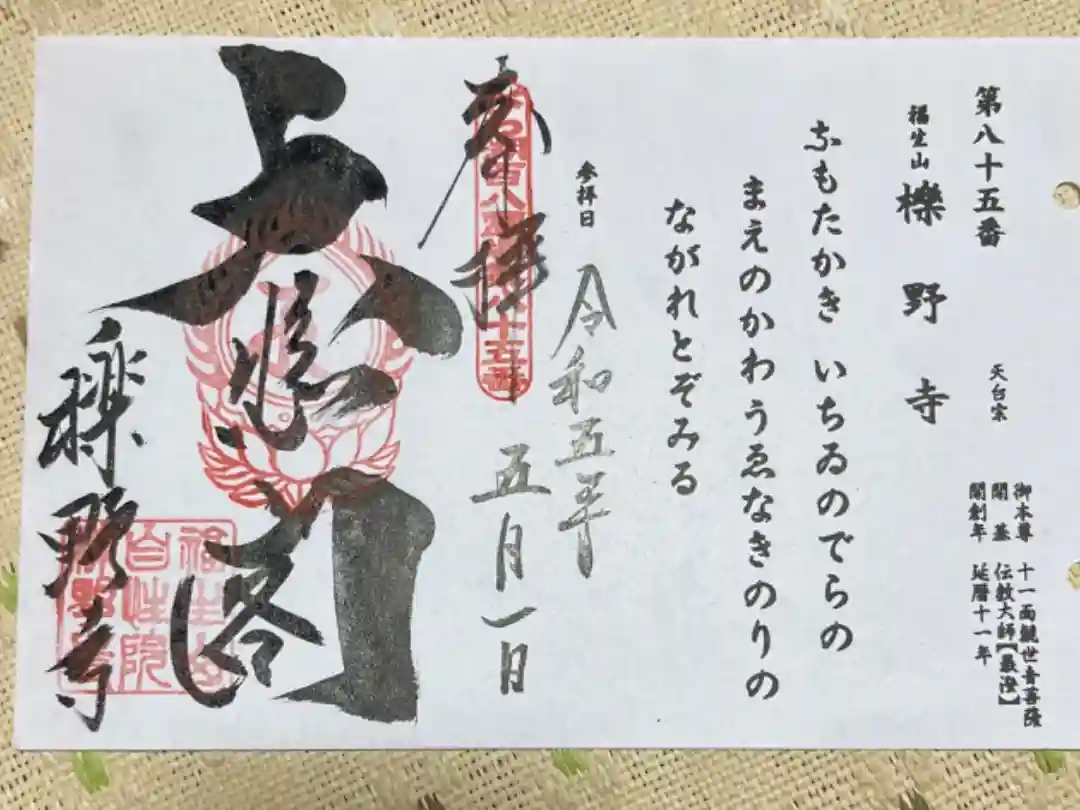 第八十五番
福生山 櫟野寺 天台宗
御本尊 十一面観世音菩薩
開基 伝教大師【最澄】
開創年 延暦十一年
なもたかき いちゐのでらの
まえのかわうゑなきのりの
ながれとぞみる
参拝日 令和五年
五月一日
奉拝
大悲閣
櫟野寺
福生山
自性院
櫟野寺